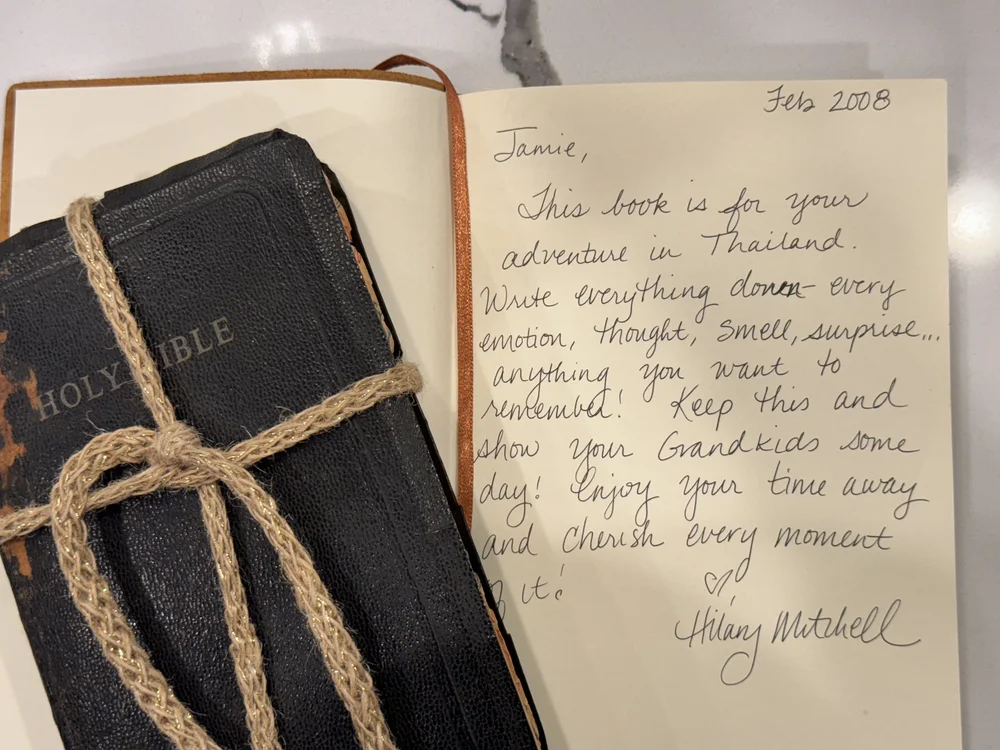 HOLY BIBLE
Feb 2008
Jamie,
This book is for your
adventure in Thailand.
Write everything down every
emotion, thought, smell, surprise...
anything you want to
remember! Keep this and
show your Grandkids some
day! Enjoy your time away
and cherish every moment
of it!
♡,
Hilary Mitchell